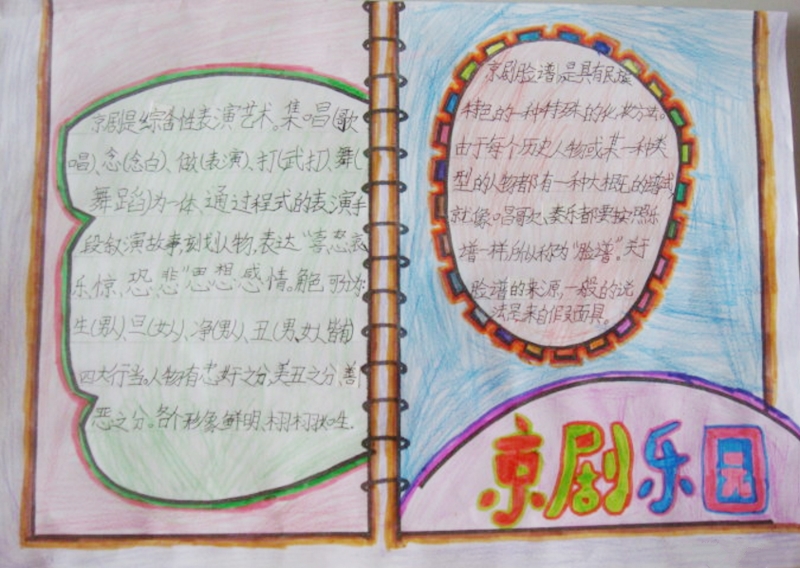 京剧是综合性表演艺术。集唱(歌
唱)、念(念白)、做(表演)、打(武打)、舞(
舞蹈)为一体、通过程式的表演手
段叙演故事,刻划人物,表达“喜怒哀
乐、惊、恐、悲”思想感情。角色可分为
生(男人)、旦(女人)、净(男人)、丑(男、女人皆有)
四大行当。人物有忠奸之分,美丑之分、善
恶之分。各个形象鲜明、栩栩如生.
京剧脸谱,是具有民族
特色的一种特殊的化妆方法。
由于每个历史人物或某一种类
型的人物都有一种大概的谱式,
就像唱歌、奏乐都要按照乐
谱一样,所以称为“脸谱”。关于
脸谱的来源,一般的说
法是来自假面具。
京剧乐园